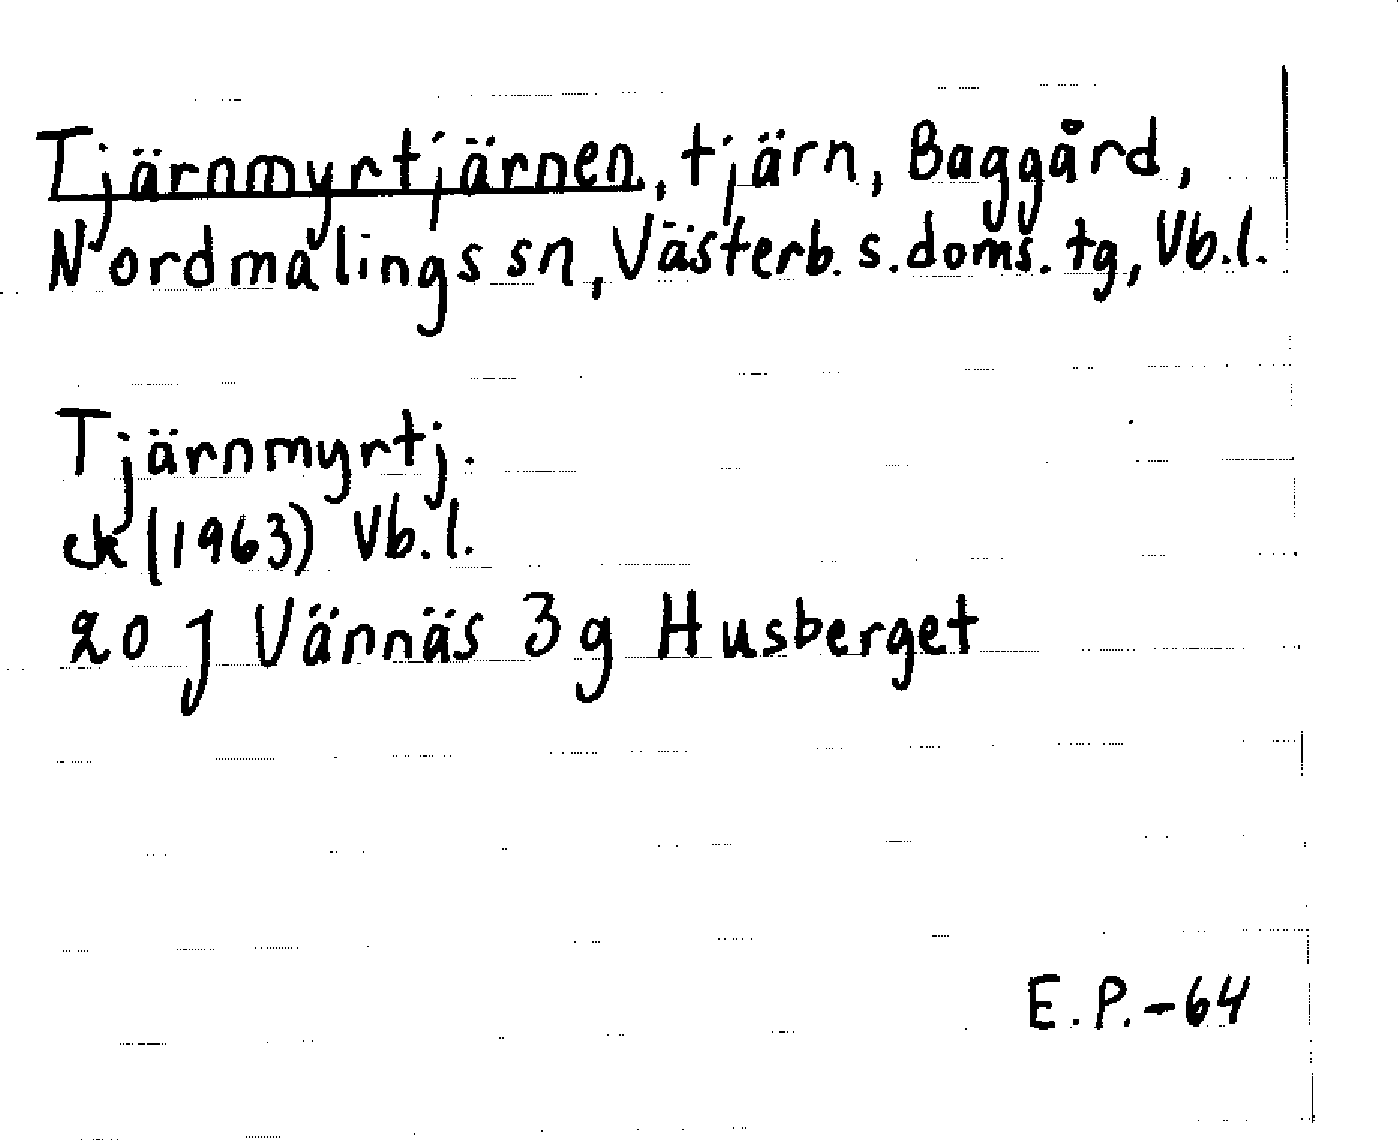 Tjärnmyrtjärnen, tjärn, Baggård,
Nordmalings sn, Västerb. s. doms. tg, Vb.l.
Tjärnmyrtj.
ek (1963) Vb.l.
20 J Vännäs 3 g Husberget
E.P.-64